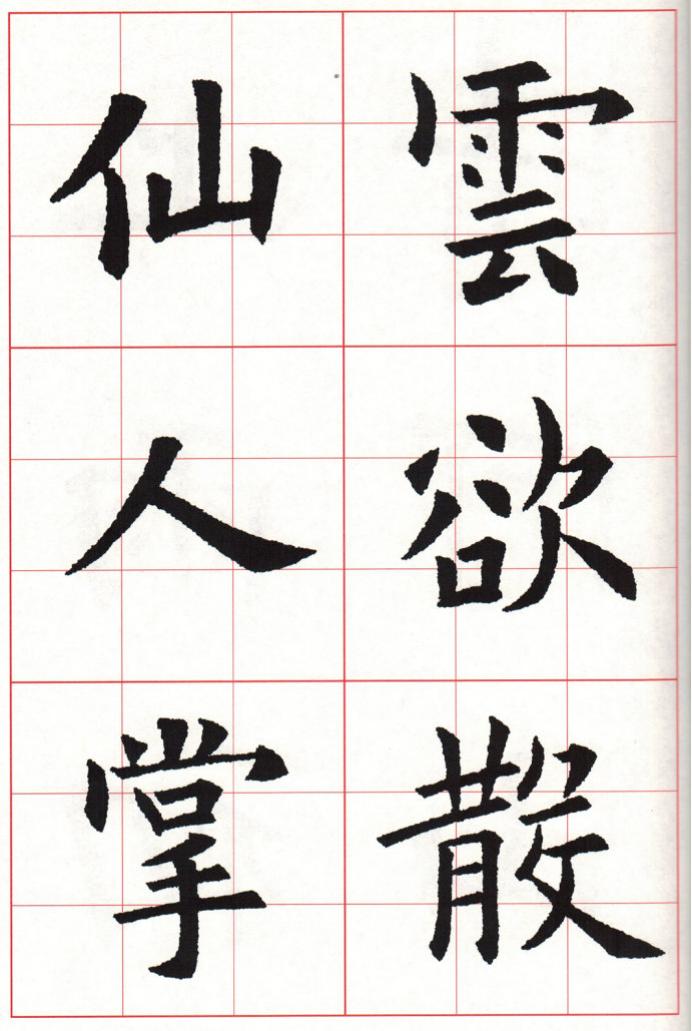 雲欲散
仙人掌